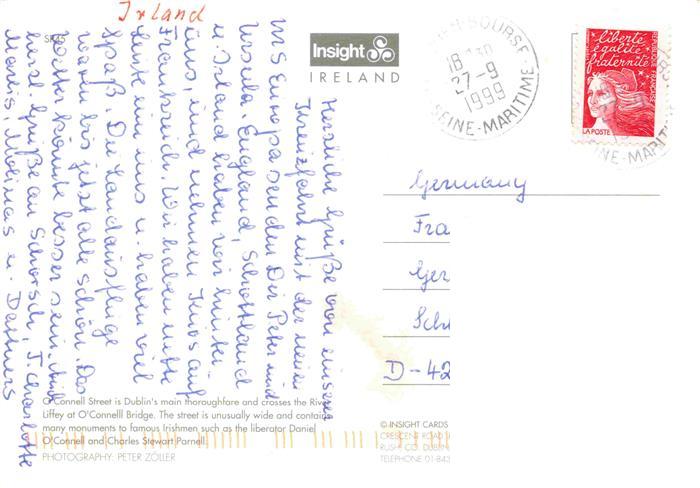 Irland
SP45
Insight
IRELAND
HAVRE BOURSE
18 H30
27-9
1999
SEINE-MARITIME
liberté
égalité
fraternité
RÉPUBLIQUE FRANÇAISE
LA POSTE
SEINE-MARITIME
Herzliche Grüße von unserer
Kreuzfahrt mit der neuen
MS Europa senden Dir Peter und
Ursula. England, Schottland
u. Irland haben wir hinter
uns, und nehmen Kurs auf
Frankreich. Wir haben nette
Leute um uns u. haben viel
Spaß. Die Landausflüge
waren bis jetzt alle schön. Das
Wetter könnte besser sein. Auch
herzl. Grüße an Schorsch, T. Charlotte
Marlis, Molinas u. Dettmers
Germany
Fra
Ger
Sch
D-42
O'Connell Street is Dublin's main thoroughfare and crosses the River
Liffey at O'Connelll Bridge. The street is unusually wide and contains
many monuments to famous Irishmen such as the liberator Daniel
O'Connell and Charles Stewart Parnell.
PHOTOGRAPHY: PETER ZÖLLER
© INSIGHT CARDS
CRESCENT ROAD
RUSH, CO. DUBL
TELEPHONE 01-843